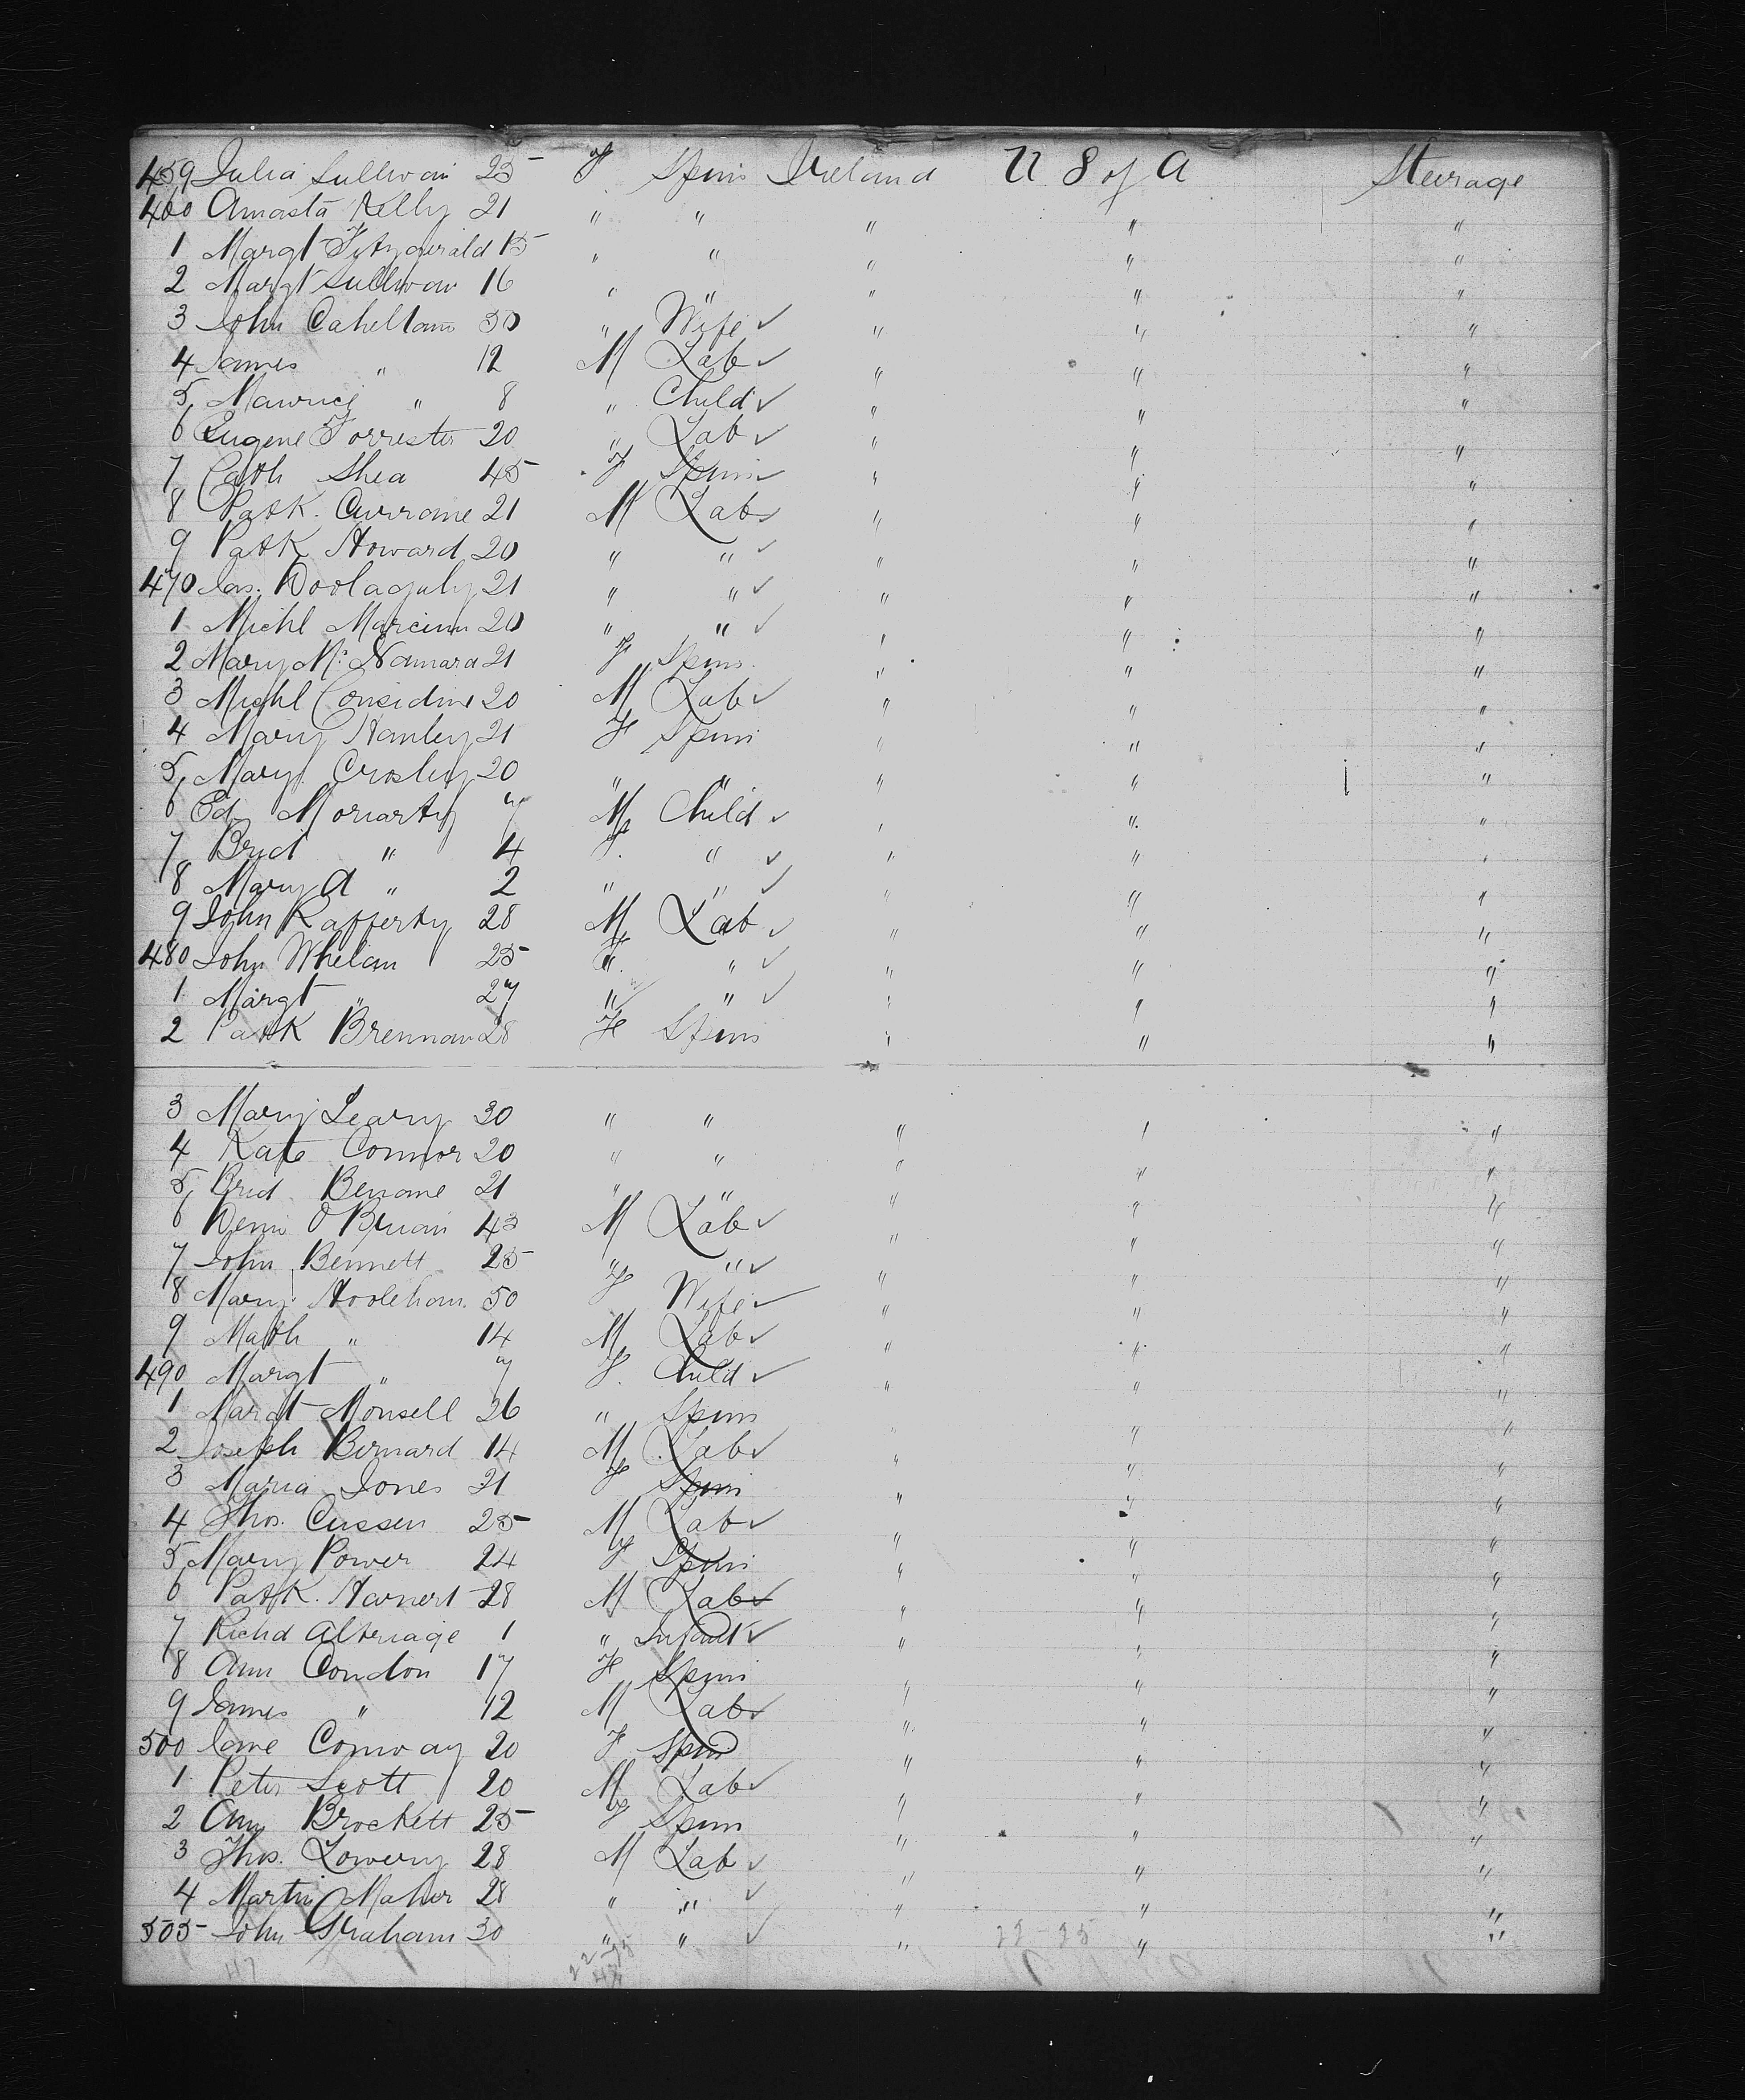 459 Julia Sullivan 25 F Spins Ireland U S of A Steerage
460 Anasta Kelly 21 " " " " "
1 Margt Fitzgerald 15 " " " " "
2 Margt Sullivan 16 " " " " "
3 John 30 " Wife ✓ " " "
4 James " 12 M Lab ✓ " " "
5 Maurice " 8 " Child ✓ " " "
6 Eugene Forrester 20 " Lab ✓ " " "
7 Cath Shea 45 F Spins " " "
8 Patk. Currane 21 M Lab ✓ " " "
9 Patk Howard 20 " " ✓ " " "
470 Jas. 21 " " ✓ " " "
1 Michl 20 " " ✓ " " "
2 Mary McNamara 21 F Spins " " "
3 Michl Considine 20 M Lab ✓ " " "
4 Mary Hanley 21 F Spins " " "
5 Mary Crosley 20 " " " " "
6 Ed Moriarty 7 M Child ✓ " " "
7 Brid " 4 F. " ✓ " " "
8 Mary A " 2 " " ✓ " " "
9 John Rafferty 28 M Lab ✓ " " "
480 John Whelan 25 " " ✓ " " "
1 Margt " 27 " " ✓ " " "
2 Patk Brennan 28 F Spins " " "
3 Mary Leary 30 " " " " "
4 Kate Connor 20 " " " " "
5 Brid 21 " " " " "
6 Denis O Brien 43 M Lab ✓ " " "
7 John Bennett 25 " " ✓ " " "
8 Mary Hoolehan 50 F Wife ✓ " " "
9 Math " 14 M Lab ✓ " " "
490 Margt " 7 F. Child ✓ " " "
1 Margt Monsell 26 " Spins " " "
2 Joseph Bernard 14 M Lab ✓ " " "
3 Maria Jones 21 F Spins " " "
4 Thos. Cussen 25 M Lab ✓ " " "
5 Mary Power 24 F Spins " " "
6 Patk. 28 M Lab ✓ " " "
7 Richd 1 " Infant ✓ " " "
8 Ann Condon 17 F Spins " " "
9 James " 12 M Lab ✓ " " "
500 Jane Conway 20 F Spins " " "
1 Peter Scott 20 M Lab ✓ " " "
2 Ann Brockett 25 F Spins " " "
3 Thos. Lowery 28 M Lab ✓ " " "
4 Martin Maher 28 " " ✓ " " "
505 John Graham 30 " " ✓ " " "
22-25
47